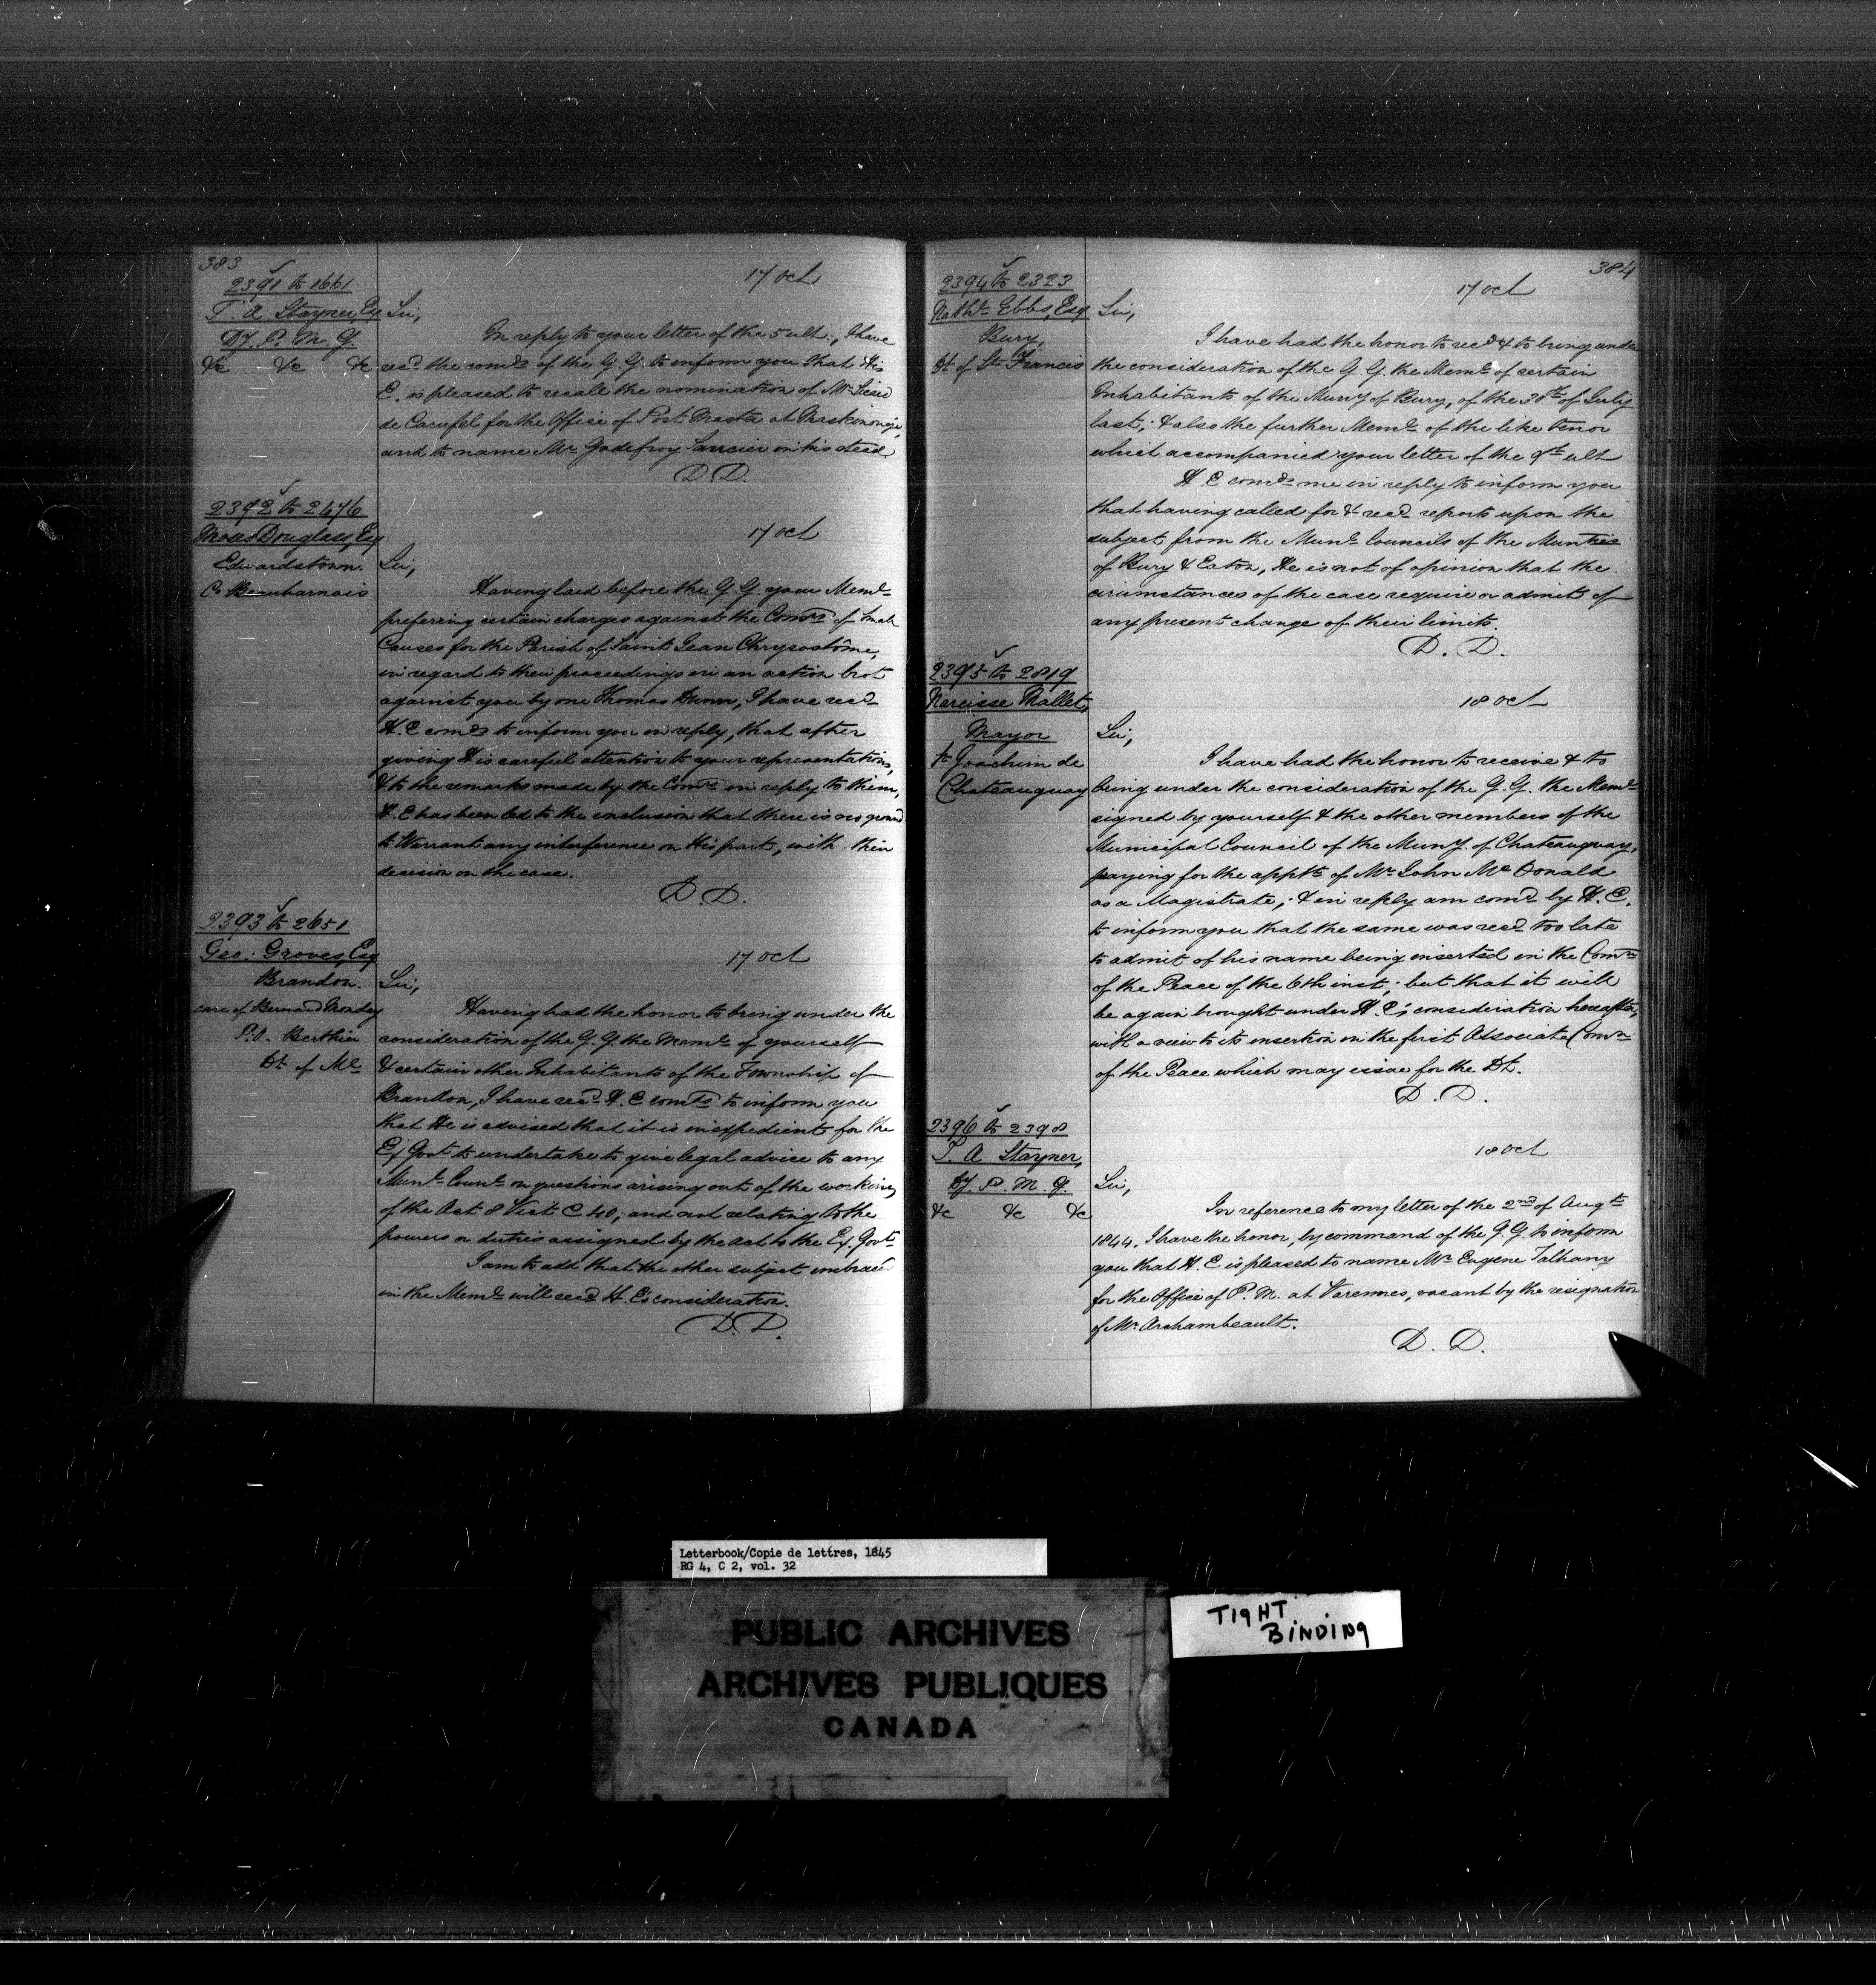 383
2391 to 1661
T. A. Stayner, Esq
Dy. P. M. G.
&c &c &c
17 Oct
Sir,
In reply to your letter of the 5 ult:, I have
recd. the comds. of the G. G. to inform you that His
E. is pleased to recall the nomination of Mr.
de Carufel for the Office of Post Master at Maskinongé,
and to name Mr. Godefroy Saucier in his stead
D. D.
2392 to 2476
Moses Douglass, Esq
Edwardstown.
Co. Beauharnois
17 Oct
Sir,
Having laid before the G. G. your Meml.
preferring certain charges against the Comrs. of Small
Causes for the Parish of Saint Jean Chrysostôme,
in regard to their proceedings in an action brot
against you by one Thomas Dunn, I have recd.
H. E comds to inform you in reply, that after
giving His careful attention to your representations,
& to the remarks made by the Comrs. in reply to them,
H. E has been led to the conclusion that there is no ground
to Warrant any interference on His part, with their
decision on the case.
D. D.
2393 to 2651
Geo: Groves, Esq
Brandon.
care of Bernard
P.O. Berthier
Dt. of Ml.
17 Oct
Sir,
Having had the honor to bring under the
consideration of the G. G. the Meml. of yourself
& certain other Inhabitants of the Township of
Brandon, I have recd. H. E comds to inform you
that He is advised that it is inexpedient for the
Ex Govt. to undertake to give legal advice to any
Munl. Councl. on questions arising out of the working
of the Act 8 Vict C. 40, and not relating to the
powers or duties assigned by the Act to the Ex. Govt.
I am to add that the other subject embraced
in the Meml. will recd. H. E's consideration.
D. D.
384
2394 to 2323
Nathl. Ebbs, Esq
Bury,
Dt. of St. Francis
17 Oct
Sir,
I have had the honor to recd. & to bring under
the consideration of the G. G. the Meml. of certain
Inhabitants of the Muny of Bury, of the 30th of July
last; & also the further Meml. of the like tenor
which accompanied your letter of the 9th ult
H. E comds. me in reply to inform you
that having called for & recd. reports upon the
subject from the Munl. Councils of the Munties
of Bury & Eaton, He is not of opinion that the
circumstances of the case require or admit of
any present change of their limits.
D. D.
2395 to 2819
Narcisse Mallet,
Mayor
St. Joachim de
Chateauguay
18 Oct
Sir,
I have had the honor to receive & to
bring under the consideration of the G. G. the Meml.
signed by yourself & the other members of the
Municipal Council of the Muny. of Chateauguay,
praying for the apptt. of Mr. John McDonald
as a Magistrate; & in reply am comd. by H. E.
to inform you that the same was recd. too late
to admit of his name being inserted in the Comn.
of the Peace of the 6th inst.; but that it will
be again brought under H. E's consideration hereafter,
with a view to its insertion in the first Associate Comn.
of the Peace which may issue for the Dt.
D. D.
2396 to 2398
T. A Stayner,
Dy. P. M. G.
&c &c &c
18 Oct
Sir,
In reference to my letter of the 2nd of Augt.
1844, I have the honor, by command of the G. G. to inform
you that H. E is pleased to name Mr. Eugene
for the Office of P. M. at Varennes, vacant by the resignation
of Mr. Archambeault.
D. D.
Letterbook/Copie de lettres, 1845
RG 4, C 2, vol. 32
PUBLIC ARCHIVES
ARCHIVES PUBLIQUES
CANADA
TIGHT
BINDING